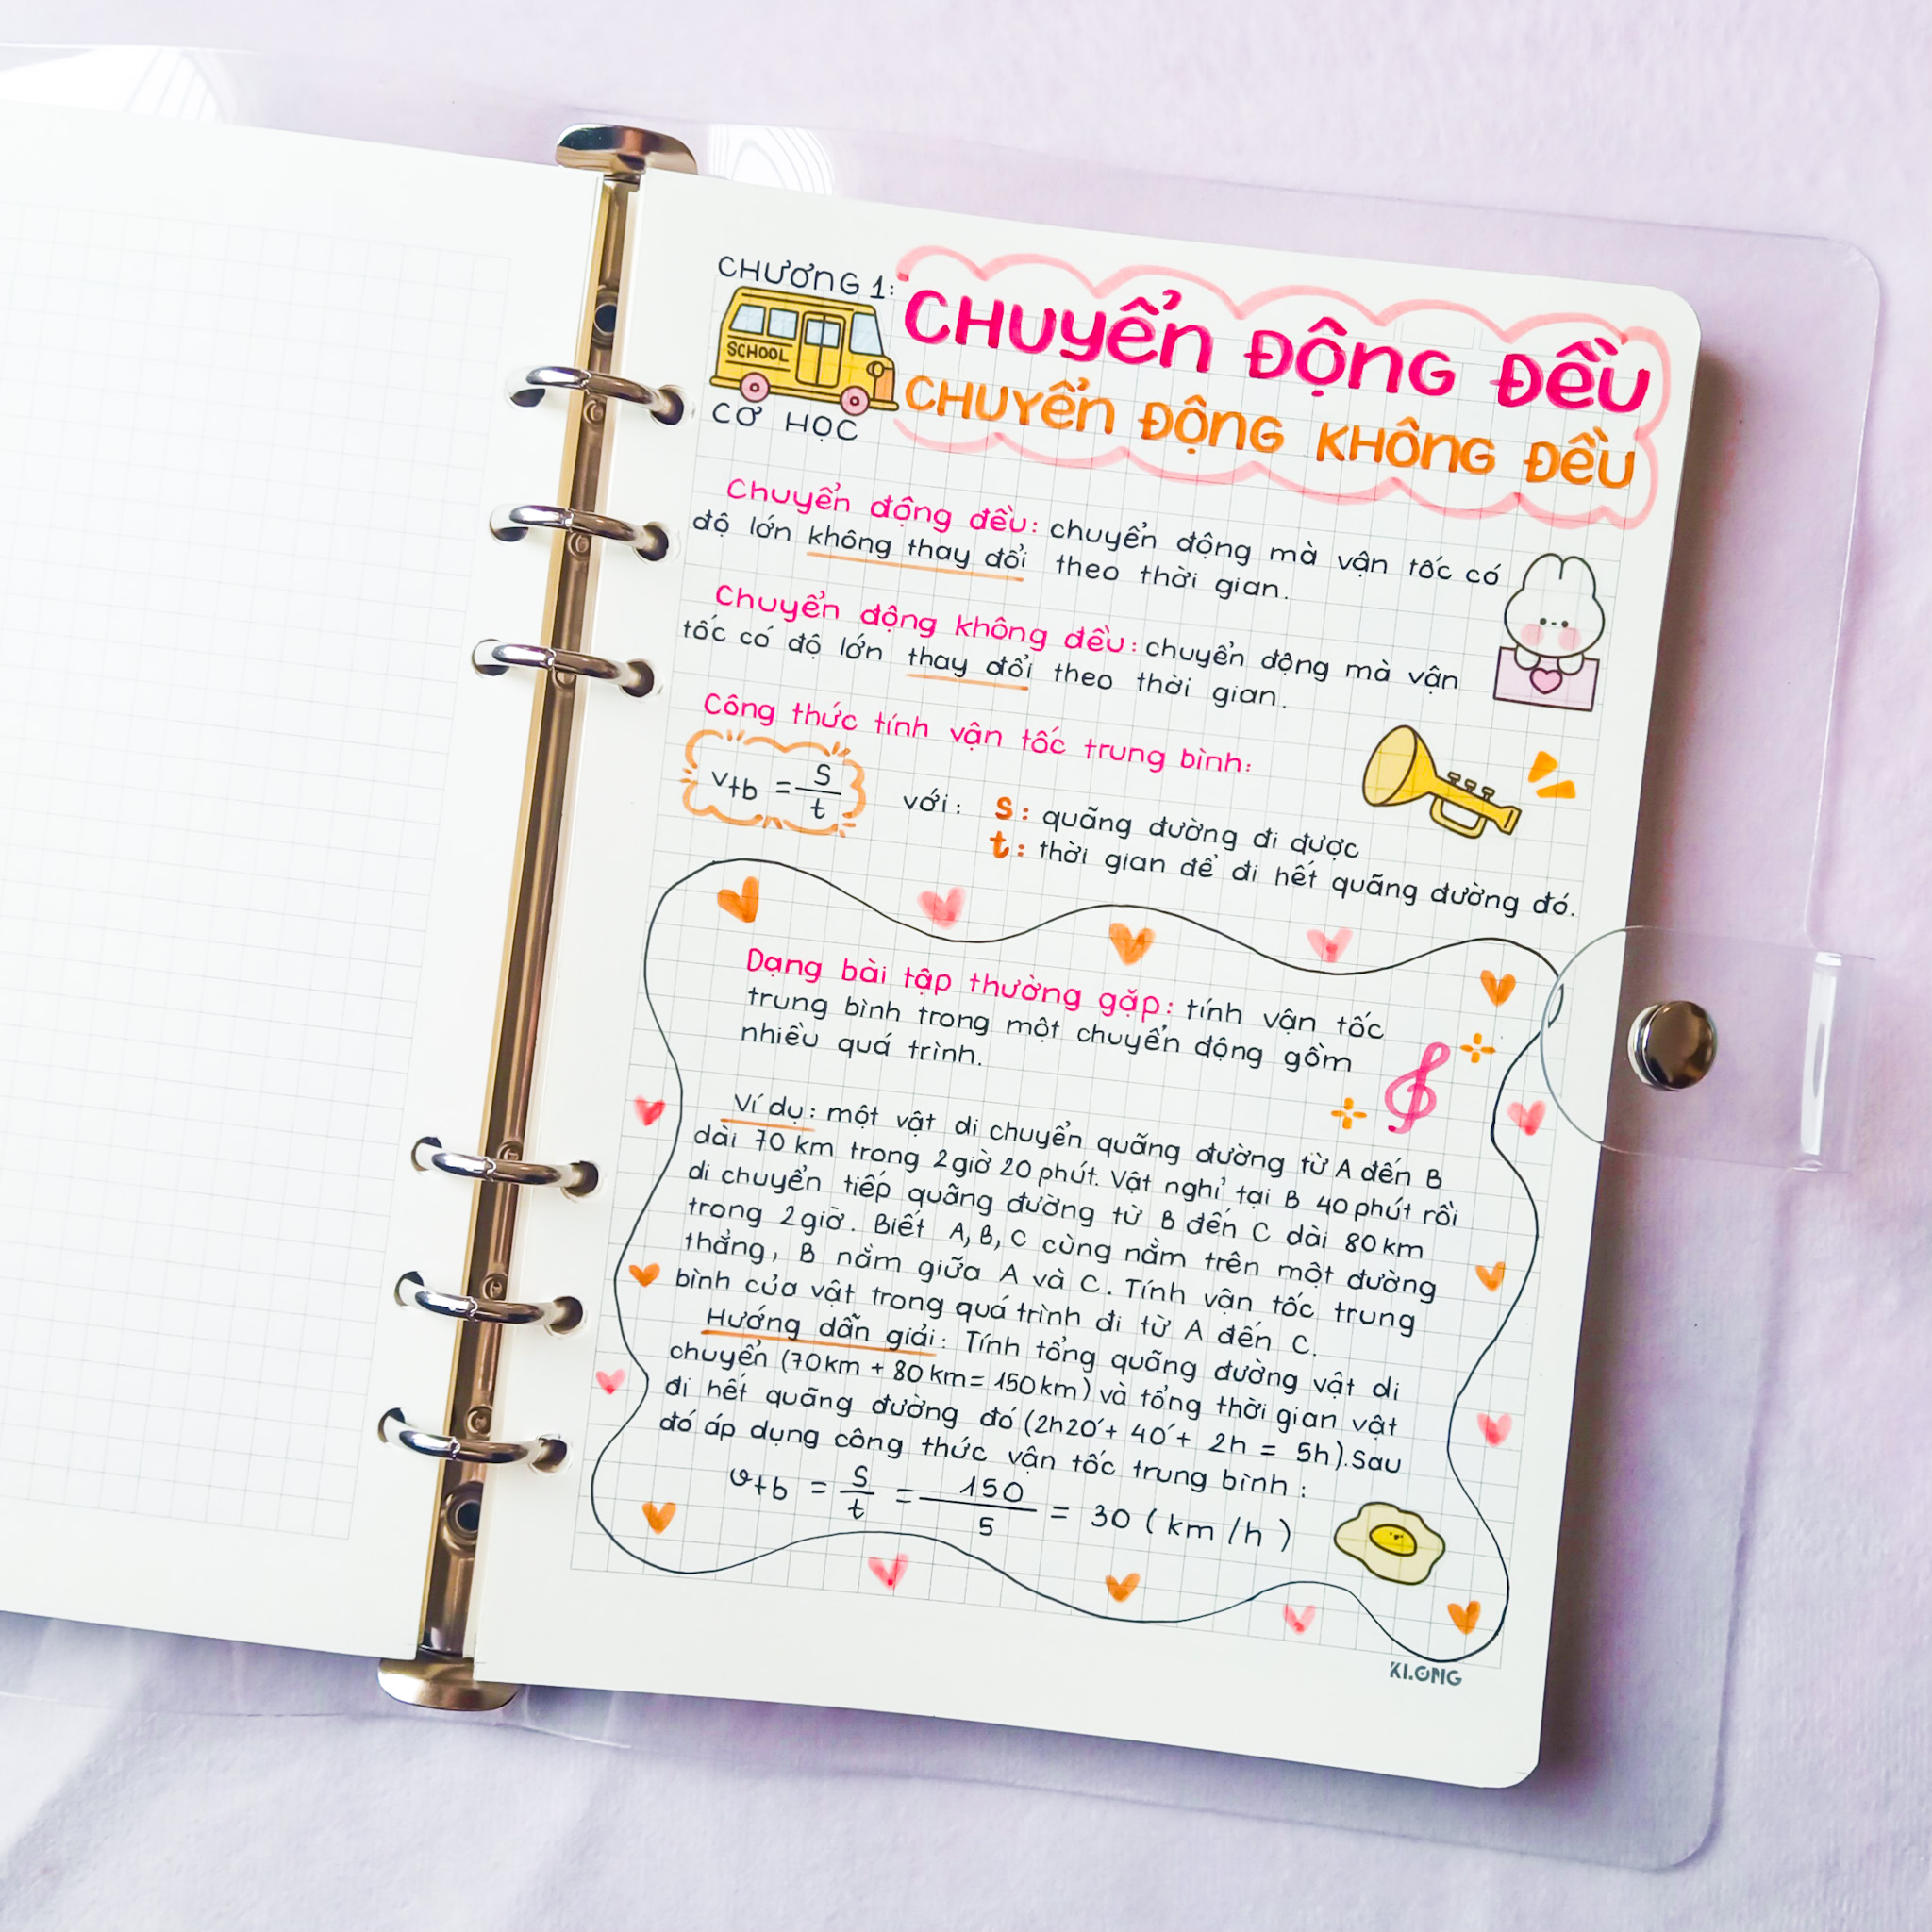 CHƯƠNG 1:
SCHOOL
CƠ HỌC
CHUYỂN ĐỘNG ĐỀU
CHUYỂN ĐỘNG KHÔNG ĐỀU
Chuyển động đều: chuyển động mà vận tốc có
độ lớn không thay đổi theo thời gian.
Chuyển động không đều: chuyển động mà vận
tốc có độ lớn thay đổi theo thời gian.
Công thức tính vận tốc trung bình:
vtb = S/t
với: S: quãng đường đi được
t: thời gian để đi hết quãng đường đó.
Dạng bài tập thường gặp: tính vận tốc
trung bình trong một chuyển động gồm
nhiều quá trình.
Ví dụ: một vật di chuyển quãng đường từ A đến B
dài 70 km trong 2 giờ 20 phút. Vật nghỉ tại B 40 phút rồi
di chuyển tiếp quãng đường từ B đến C dài 80 km
trong 2 giờ. Biết A, B, C cùng nằm trên một đường
thẳng, B nằm giữa A và C. Tính vận tốc trung
bình của vật trong quá trình đi từ A đến C.
Hướng dẫn giải: Tính tổng quãng đường vật di
chuyển (70km + 80km = 150km) và tổng thời gian vật
đi hết quãng đường đó (2h20' + 40' + 2h = 5h). Sau
đó áp dụng công thức vận tốc trung bình:
vtb = S/t = 150/5 = 30 (km/h)
KI.ONG